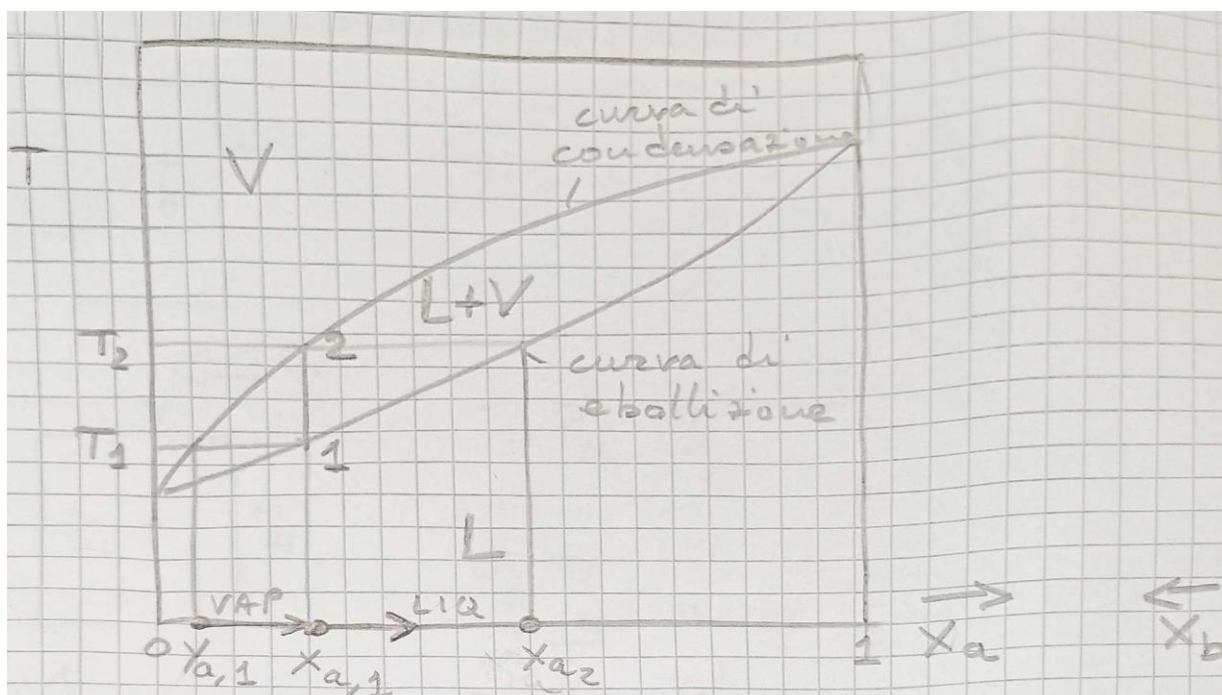 curva di
condensazione
T
V
L+V
T2
2
curva di
ebollizione
T1
1
L
VAP
LIQ
0
Ya,1
Xa,1
Xa2
1
Xa
Xb